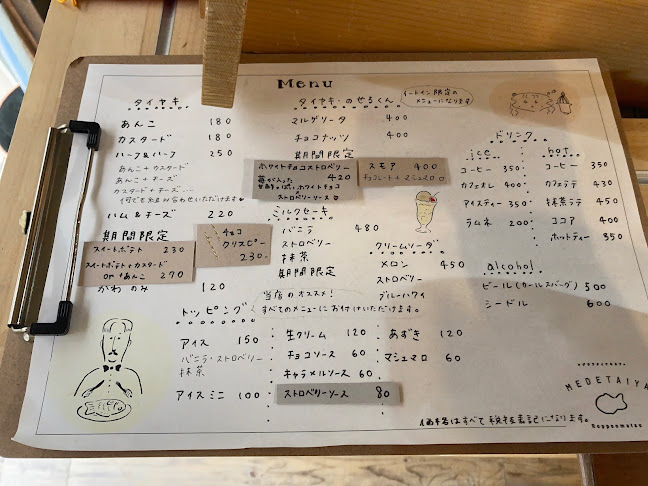 Menu
タイヤキ
あんこ 180
カスタード 180
ハーフ&ハーフ 250
あんこ+カスタード
あんこ+チーズ
カスタード+チーズ...
ハム&チーズ 220
期間限定
スイートポテト 230
スイートポテト+カスタード
or +あんこ 270
チョコ
クリスピー
230.-
かわのみ 120
タイヤキ・のせるくん
イートイン限定の
メニューになります
マルゲリータ 400
チョコナッツ 400
期間限定
ホワイトチョコストロベリー
420
苺が入った
甘酸っぱいホワイトチョコ
ストロベリーソース
スモア 400
チョコレート+マシュマロ
ミルクセーキ
バニラ 480
ストロベリー
抹茶
期間限定
クリームソーダ
メロン 450
ストロベリー
ブルーハワイ
ドリンク
ice
コーヒー 350
カフェオレ 400
アイスティー 350
ラムネ 200
hot
コーヒー 350
カフェラテ 430
抹茶ラテ 450
ココア 400
ホットティー 350
alcohol
ビール(カールスバーグ) 500
シードル 600
トッピング
当店のオススメ!
すべてのメニューにお付けいただけます。
アイス 150
バニラ・ストロベリー
抹茶
アイスミニ 100
生クリーム 120
チョコソース 60
キャラメルソース 60
ストロベリーソース 80
あずき 120
マシュマロ 60
MEDETAIYA
Ropponmatsu
価格はすべて税抜表記になります。